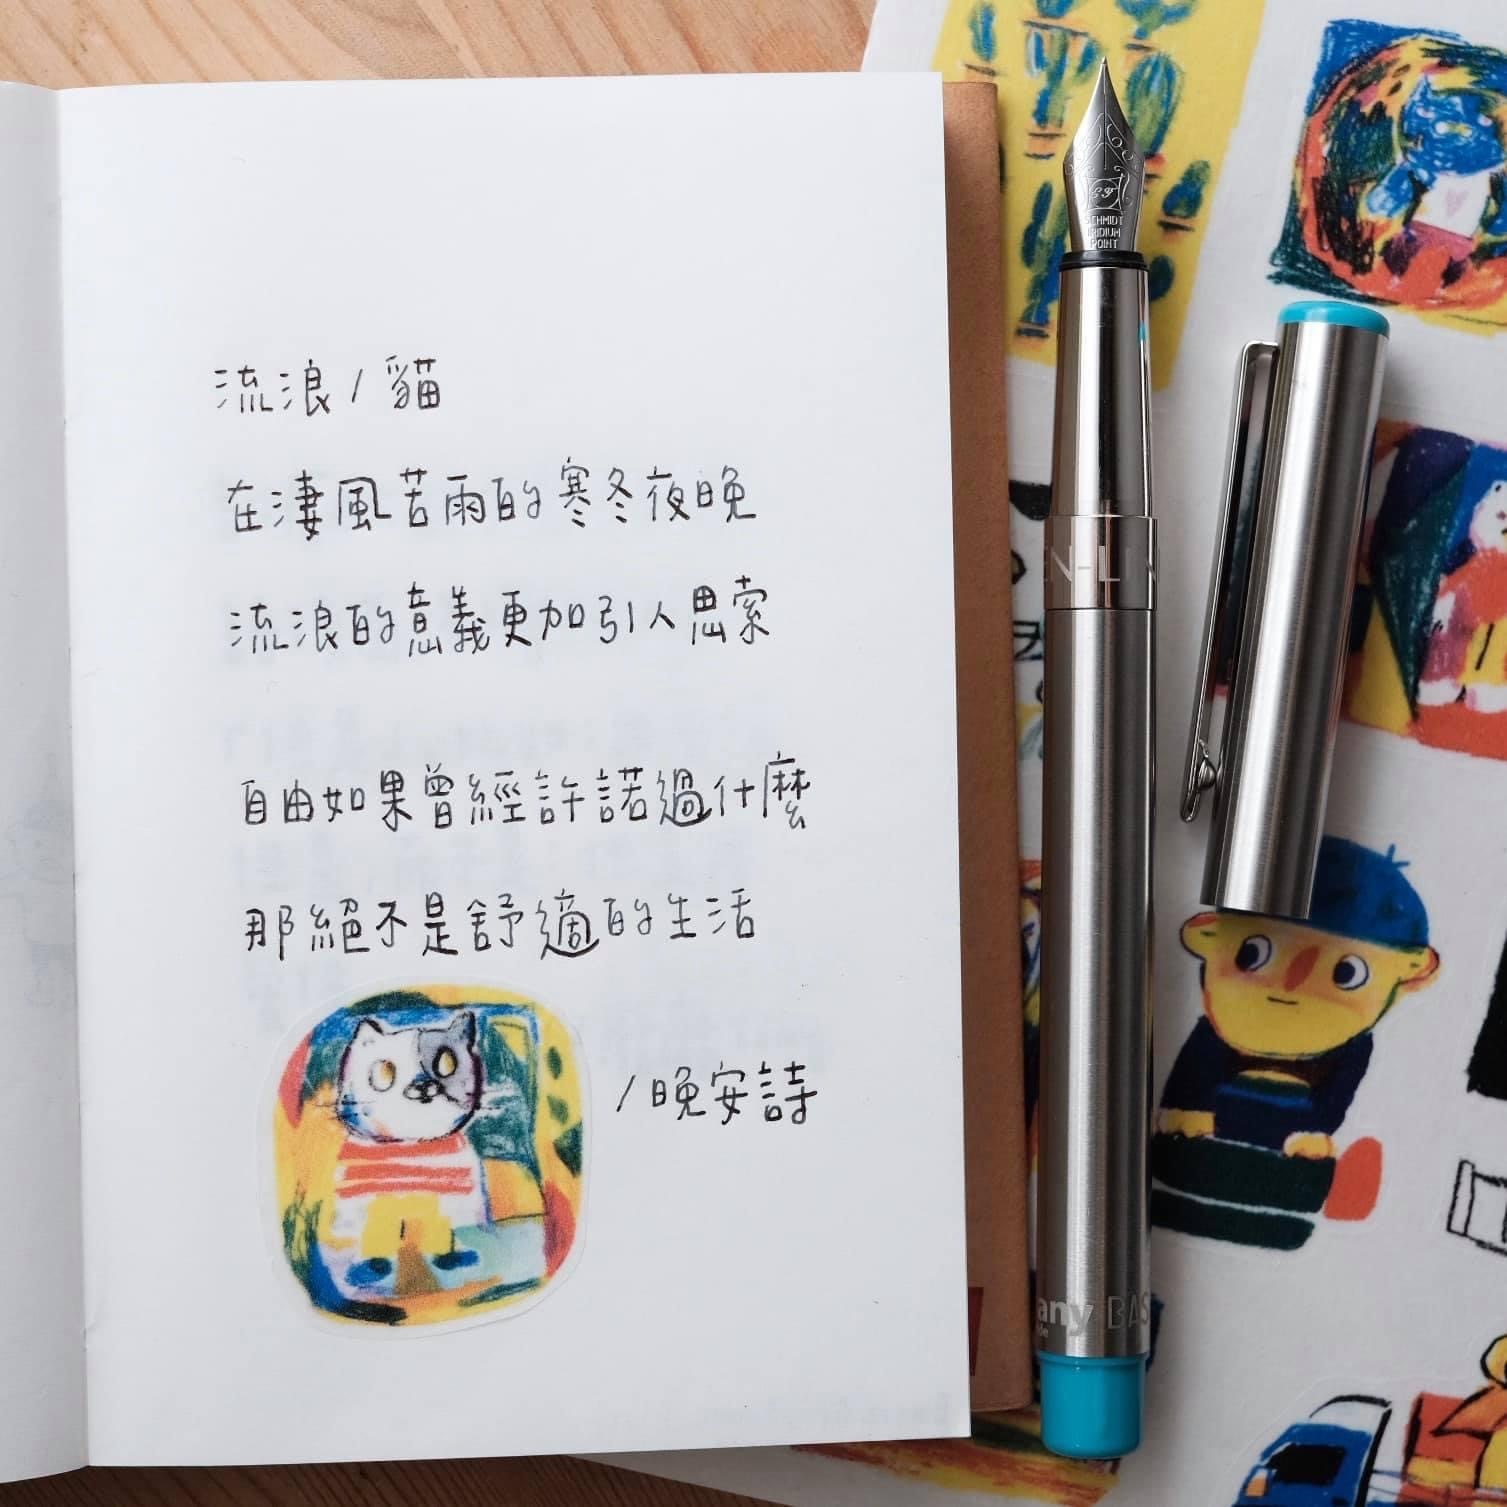 流浪/貓
在淒風苦雨的寒冬夜晚
流浪的意義更加引人思索
自由如果曾經許諾過什麼
那絕不是舒適的生活
/晚安詩
SCHMIDT
IRIDIUM
POINT
EN-LIN
any BAS